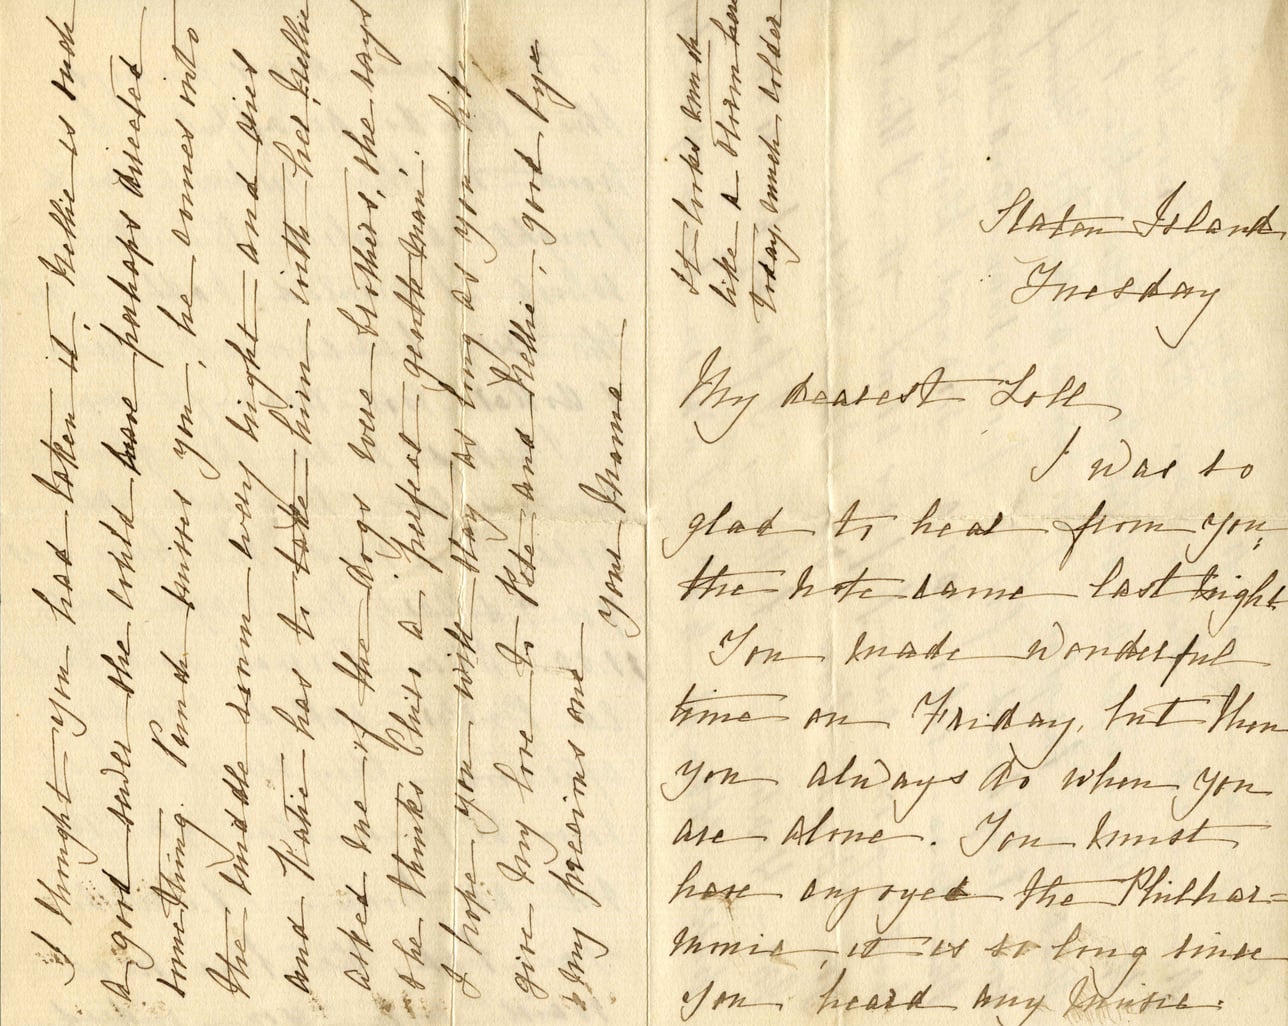 Staten Island
Tuesday
My dearest Loll
I was so
glad to hear from you,
the note came last night
You made wonderful
time on Friday, but then
you always do when you
are alone. You must
have enjoyed the Philhar=
monic, it is so long since
you heard any music.
I thought you had taken it. Nellie is such
a good sailor she could have perhaps directed
something. Punch misses you, he comes into
the middle room every night and cries
and Katie has to take him with her, Nellie
asked me if the dogs were brothers, she says
she thinks Chils a "perfect gentleman".
I hope you will stay as long as you like
give my love to Pete and Nellie, good bye
my precious one
Your Mama
It looks much
like a storm here
today, much colder